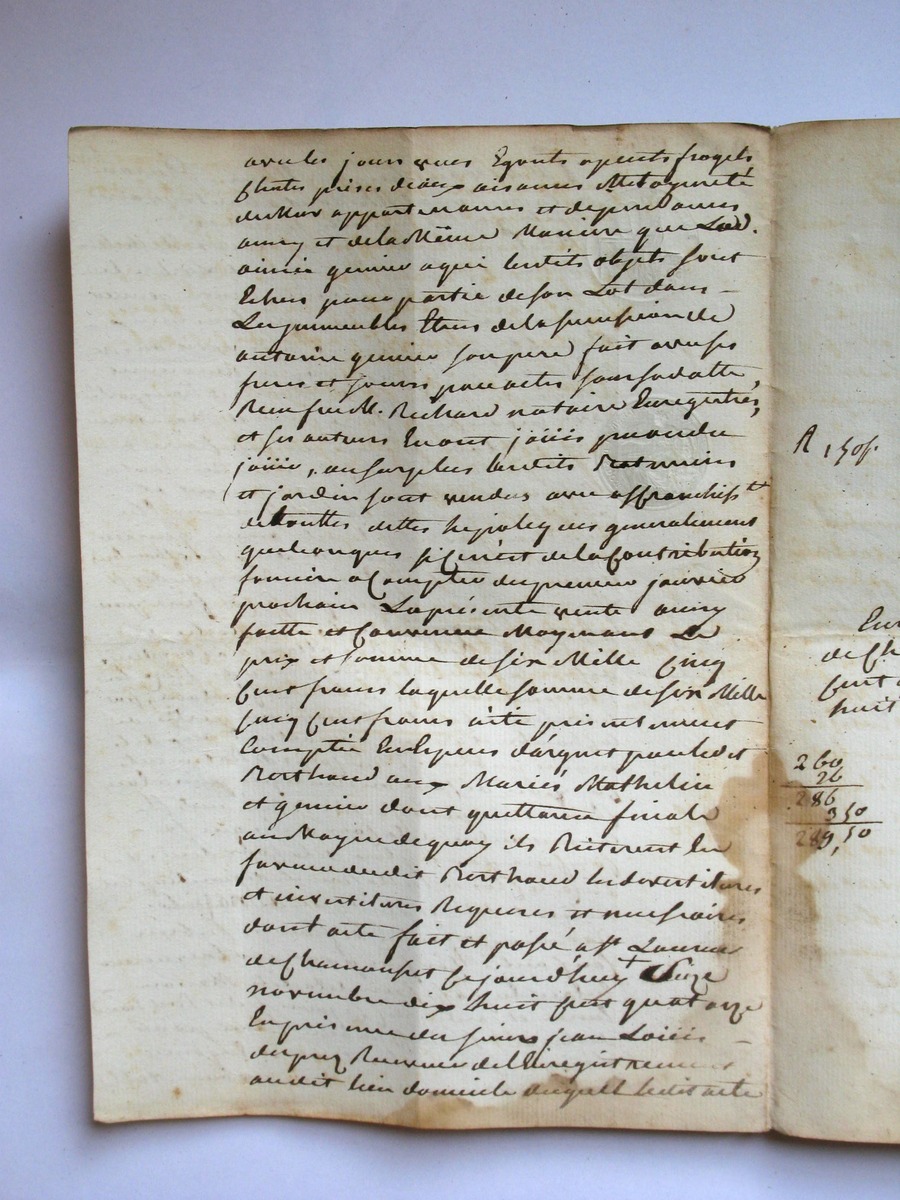 avec les jours vues Egouts apents
prises d'eaux aisances
du Mur appartenances et dependances
ainsy et de la Même Maniere que Lad.
aimée genier a qui lesdits objets sont
Echus pour partie de son Lot dans
Les immeubles de la succession de
antoine genier son pere fait avec ses
freres et soeurs par actes sous sa datte
Reçu par M. Richard notaire Enregistrés,
et ses auteurs En ont joüis pu ou du
joüir, au surplus lesdits
et jardin sont vendus avec affranchisst
de touttes dettes hipoteques generalement
quelconques si Ce n'est de la Contribution
fonciere a Compter du premier janvier
prochain La présente vente ainsy
faitte et Convenue Moyenant Le
prix et somme de six Mille Cinq
Cent francs laquelle somme de six Mille
Cinq Cent francs a été présentement
Comptée En Especes d'argent par ledit
Berthaud aux Mariés Mathelin
et genier dont quittance finale
au Moyen de quoy ils
faveur dudit Berthaud les devestitures
et investitures Requises et necessaires
dont acte fait et passé a St Laurent
de Chamousset Ce jourd'huy Douze
novembre dix huit Cent quatorze
En présence des sieurs jean Loüis
Receveur de l'Enregistrement
audit lieu domicile ledit acte
R 1 50
de Ch
Cent
huit
260
26
286
3 50
289,50